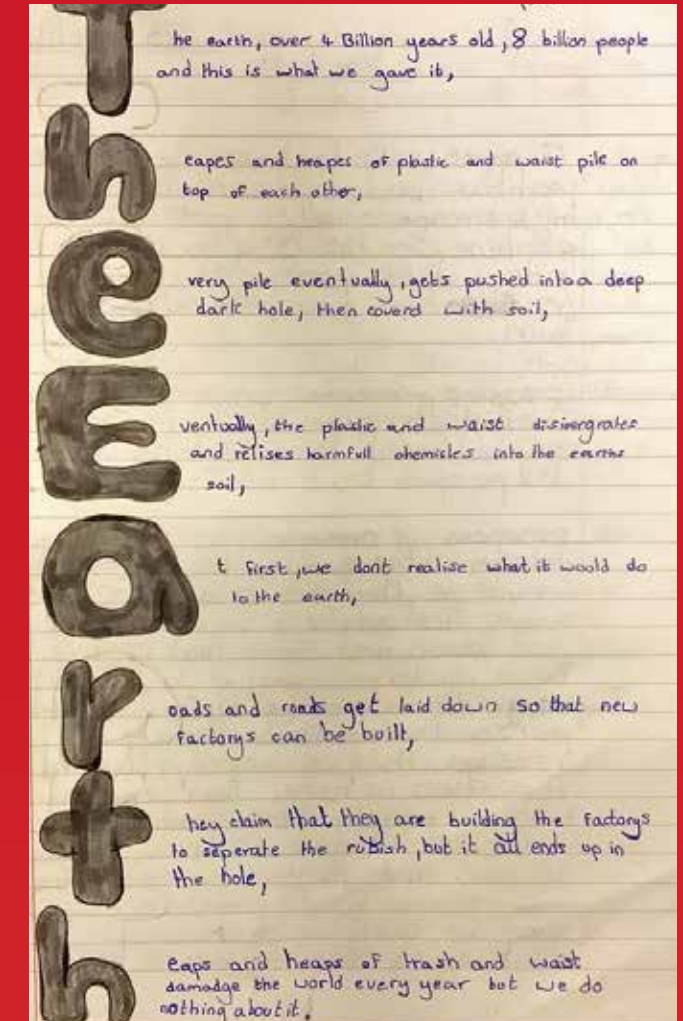 The earth, over 4 Billion years old, 8 billion people
and this is what we gave it,
heapes and heapes of plastic and waist pile on
top of each other,
every pile eventually, gets pushed into a deep
dark hole, then coverd with soil,
Eventually, the plastic and waist disinergrates
and relises harmfull chemicles into the earths
soil,
at first, we dont realise what it would do
to the earth,
roads and roads get laid down so that new
factorys can be built,
they claim that they are building the factorys
to seperate the rubish, but it all ends up in
the hole,
heaps and heaps of trash and waist
damadge the world every year but we do
nothing about it.